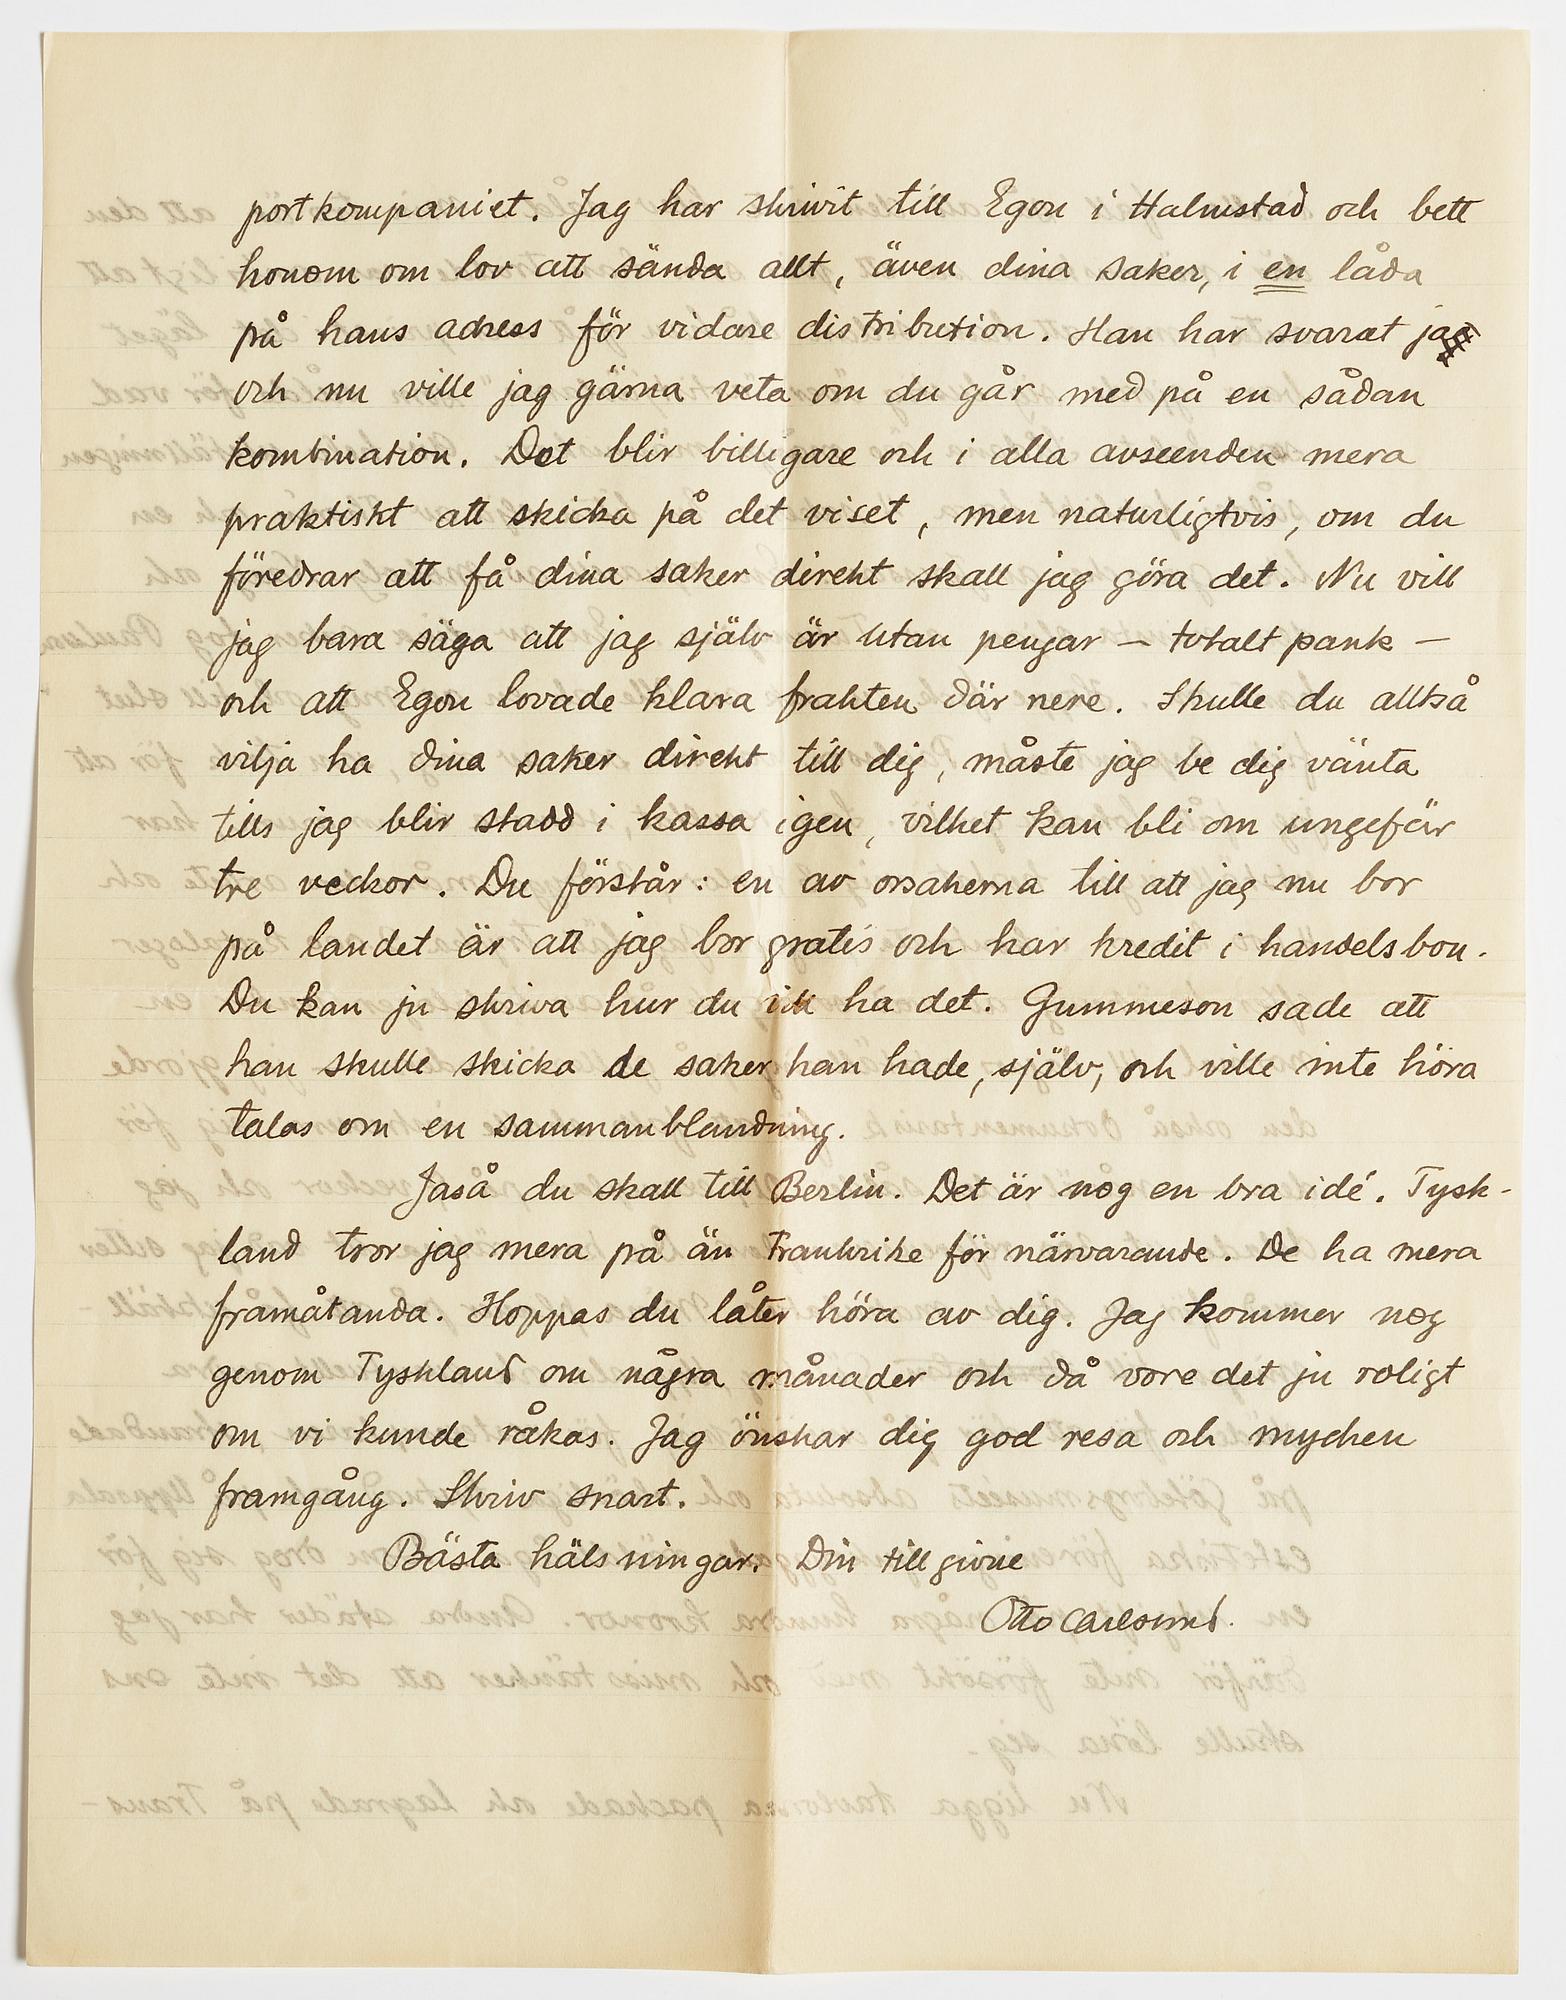 portkompaniet. Jag har skrivit till Egon i Halmstad och bett
honom om lov att sända allt, även dina saker, i en låda
på hans adress för vidare distribution. Han har svarat ja
och nu ville jag gärna veta om du går med på en sådan
kombination. Det blir billigare och i alla avseenden mera
praktiskt att skicka på det viset, men naturligtvis, om du
föredrar att få dina saker direkt skall jag göra det. Nu vill
jag bara säga att jag själv är utan pengar – totalt pank –
och att Egon lovade klara frakten där nere. Skulle du alltså
vilja ha dina saker direkt till dig, måste jag be dig vänta
tills jag blir stadd i kassa igen, vilket kan bli om ungefär
tre veckor. Du förstår: en av orsakerna till att jag nu bor
på landet är att jag bor gratis och har kredit i handelsbon.
Du kan ju skriva hur du vill ha det. Gummeson sade att
han skulle skicka de saker han hade, själv, och ville inte höra
talas om en sammanblandning.
Jaså du skall till Berlin. Det är nog en bra idé. Tysk-
land tror jag mera på än Frankrike för närvarande. De ha mera
framåtanda. Hoppas du låter höra av dig. Jag kommer nog
genom Tyskland om några månader och då vore det ju roligt
om vi kunde råkas. Jag önskar dig god resa och mycken
framgång. Skriv snart.
Bästa hälsningar. Din tillgivne
Otto Carlsund.